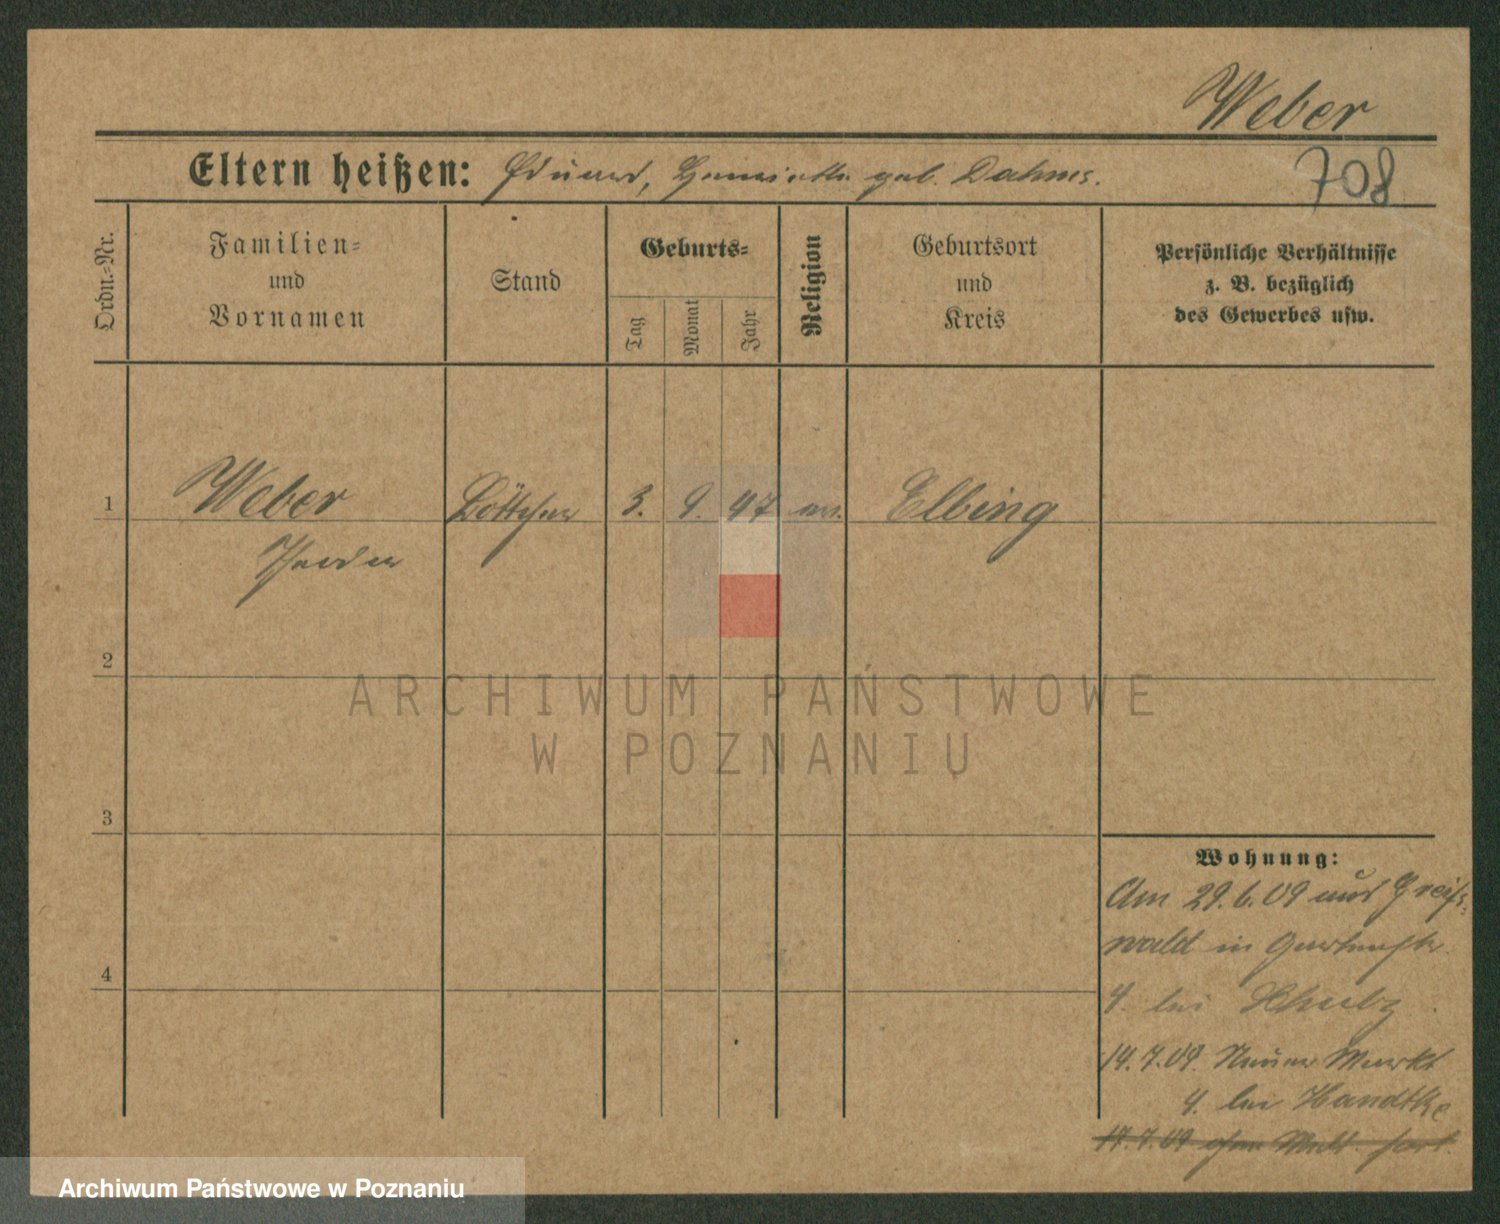 Weber
Eltern heißen: Eduard, Henriette geb. Dahms.
708
Ordn.=Nr.
Familien=
und
Vornamen
Stand
Geburts=
Tag
Monat
Jahr
Religion
Geburtsort
und
Kreis
Persönliche Verhältnisse
z. B. bezüglich
des Gewerbes usw.
1 Weber Böttcher 3. 9. 47 ev. Elbing
Theodor
2
3
4
ARCHIWUM PAŃSTWOWE
W POZNANIU
Wohnung:
Am 29.6.09 aus Greifs-
wald in Gartenstr.
4. bei Schulz.
14.7.09. Neuer Markt
4. bei Handtke
17.7.09 ohne Meld. fort.
Archiwum Państwowe w Poznaniu